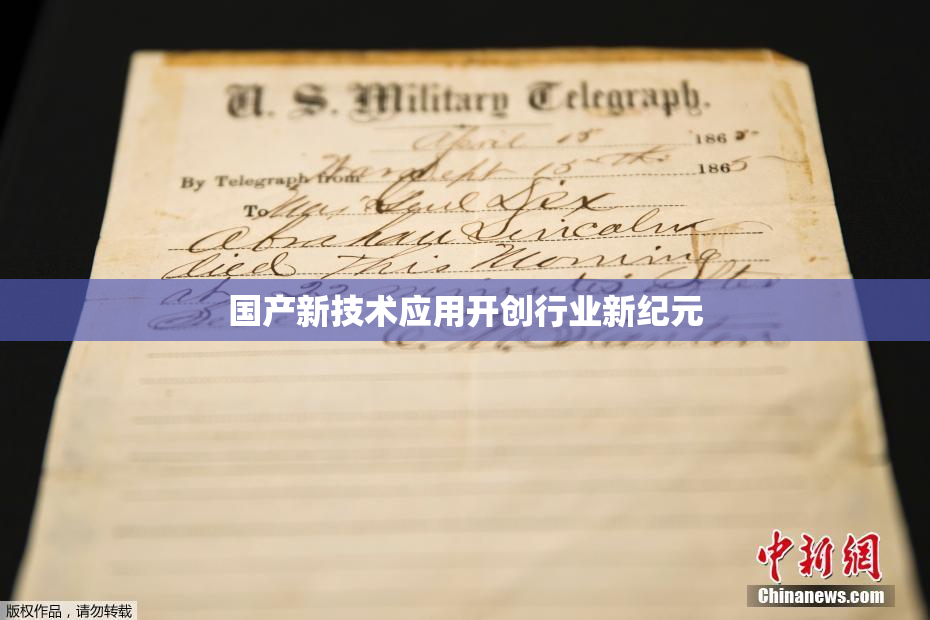 U. S. Military Telegraph.
April 15 1865
By Telegraph from War Dept 15th 1865
To Maj Genl Dix
Abraham Lincoln
died This Morning
at 22 minutes after
国产新技术应用开创行业新纪元
E. M. Stanton
中新网
Chinanews.com
版权作品，请勿转载